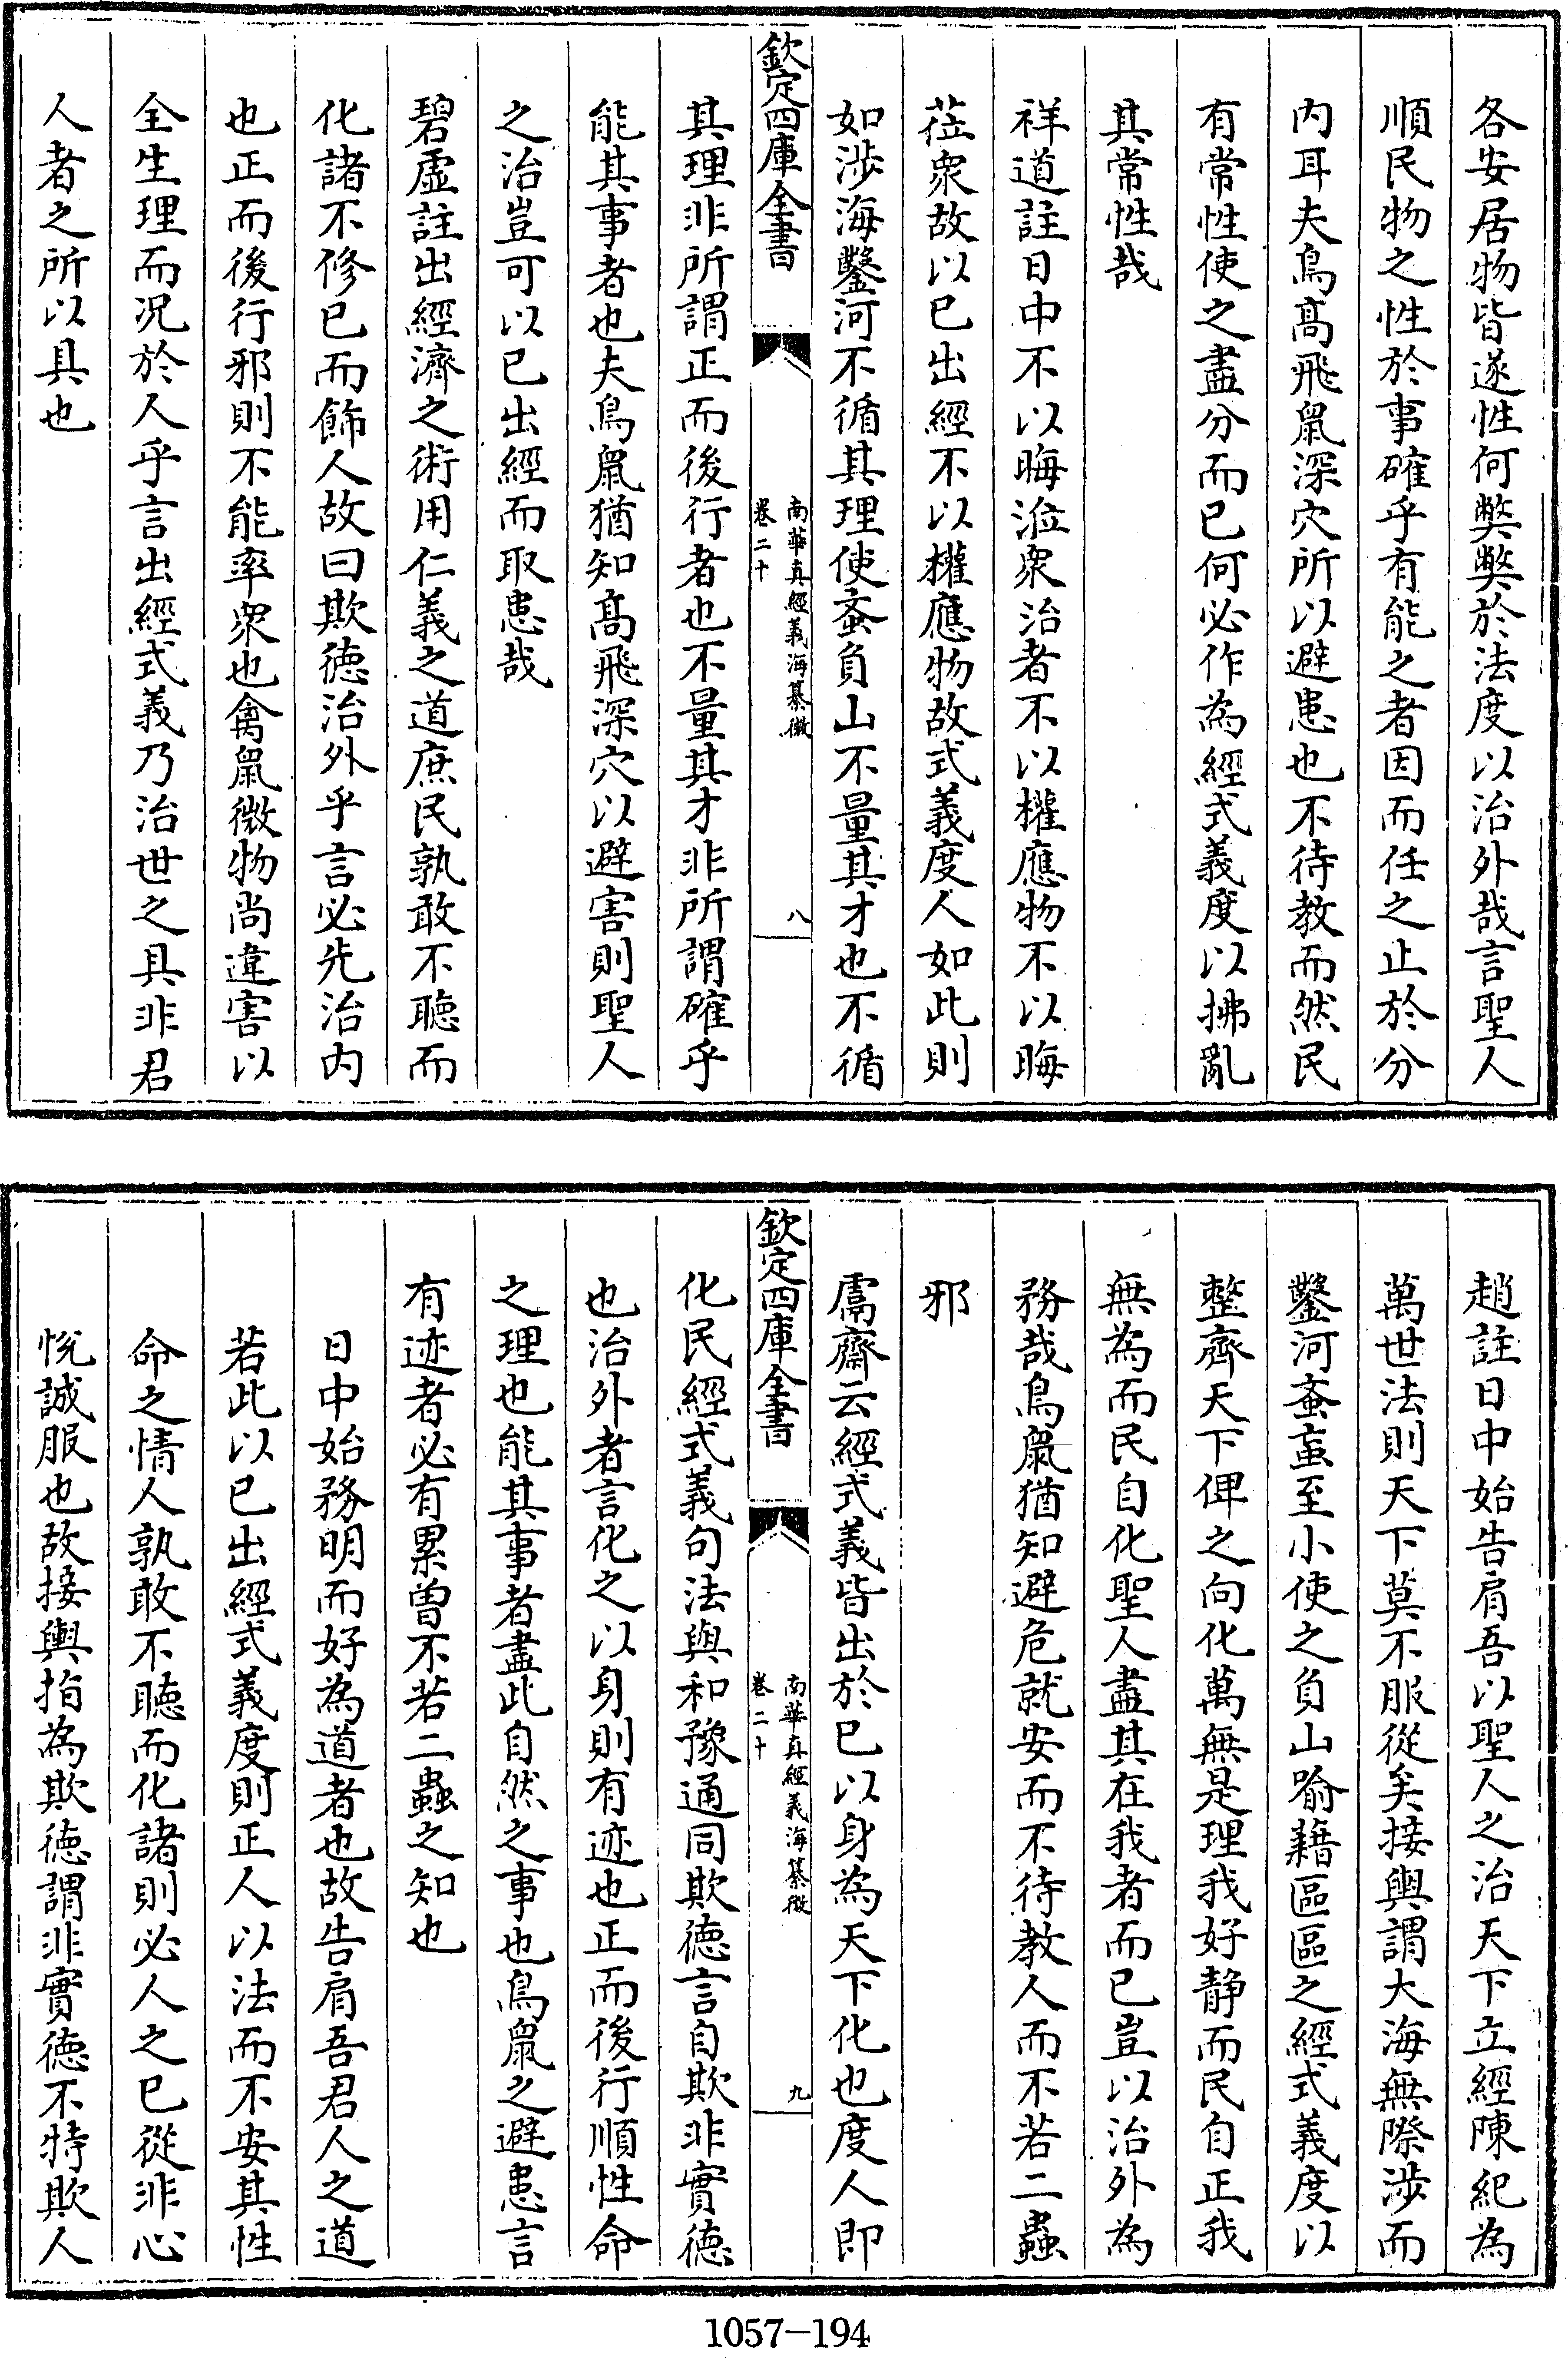 各安居物皆遂性何弊弊於法度以治外哉言聖人
順民物之性於事確乎有能之者因而任之止於分
内耳夫鳥髙飛鼠深穴所以避患也不待教而然民
有常性使之盡分而已何必作為經式義度以拂亂
其常性哉
祥道註日中不以晦涖衆治者不以權應物不以晦
莅衆故以已出經不以權應物故式義度人如此則
如涉海鑿河不循其理使蚉負山不量其才也不循
欽定四庫全書
南華真經義海纂微
卷二十
八
其理非所謂正而後行者也不量其才非所謂確乎
能其事者也夫鳥鼠猶知髙飛深穴以避害則聖人
之治豈可以已出經而取患哉
碧虛註出經濟之術用仁義之道庶民孰敢不聽而
化諸不修已而飾人故曰欺徳治外乎言必先治内
也正而後行邪則不能率衆也禽鼠微物尚違害以
全生理而況於人乎言出經式義乃治世之具非君
人者之所以具也
趙註日中始告肩吾以聖人之治天下立經陳紀為
萬世法則天下莫不服從矣接輿謂大海無際涉而
鑿河蚉䖟至小使之負山喻藉區區之經式義度以
整齊天下俾之向化萬無是理我好静而民自正我
無為而民自化聖人盡其在我者而已豈以治外為
務哉鳥鼠猶知避危就安而不待教人而不若二蟲
邪
鬳齋云經式義皆出於已以身為天下化也度人即
欽定四庫全書
南華真經義海纂微
卷二十
九
化民經式義句法與和豫通同欺徳言自欺非實徳
也治外者言化之以身則有迹也正而後行順性命
之理也能其事者盡此自然之事也鳥鼠之避患言
有迹者必有累曽不若二蟲之知也
日中始務明而好為道者也故告肩吾君人之道
若此以已出經式義度則正人以法而不安其性
命之情人孰敢不聽而化諸則必人之已從非心
恱誠服也故接輿指為欺徳謂非實徳不特欺人
1057-194